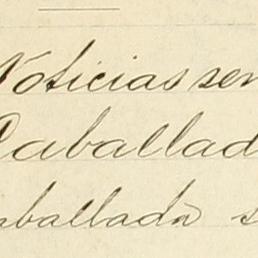 Noticias ser
Caballad
aballada s